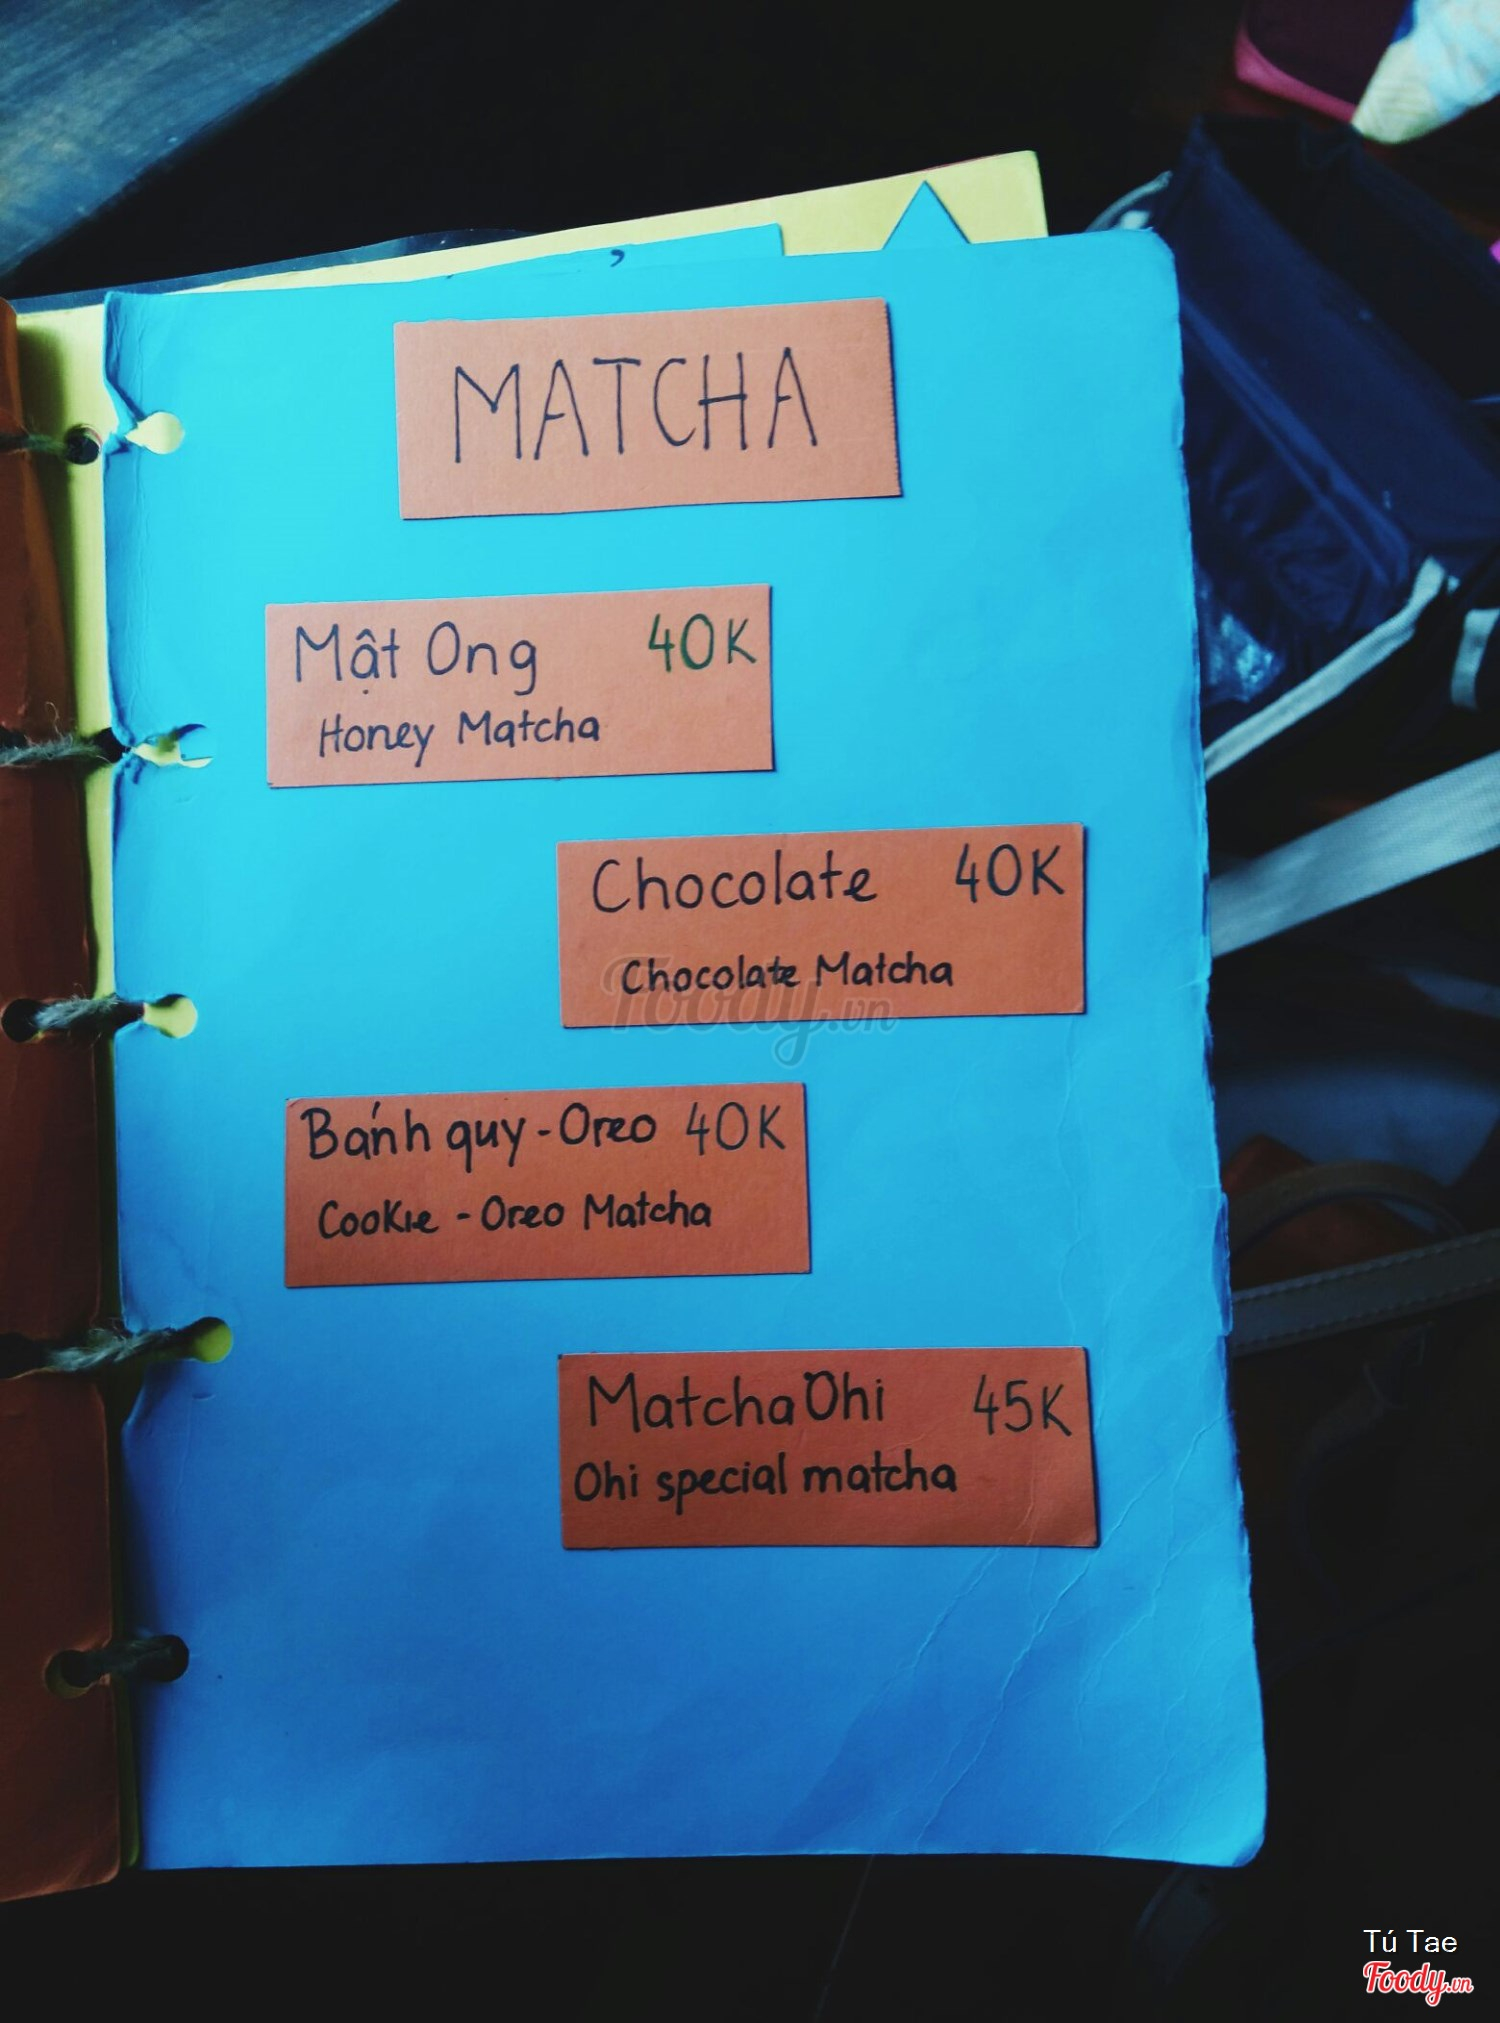 MATCHA
Mật Ong 40K
Honey Matcha
Chocolate 40K
Chocolate Matcha
Foody.vn
Bánh quy - Oreo 40K
Cookie - Oreo Matcha
Matcha Ohi 45K
Ohi special matcha
Tú Tae
Foody.vn